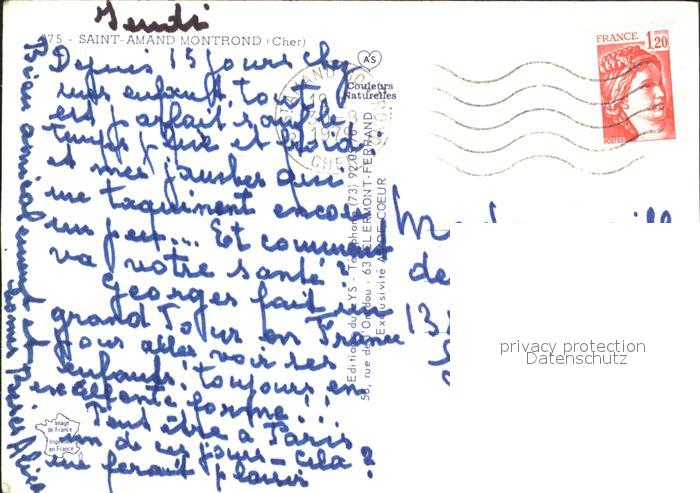 Jeudi
875 - SAINT-AMAND MONTROND (Cher)
Depuis 15 jours chez
mes enfants tout
est parfait sauf le
temps pluie et froid !
et mes jambes qui
me taquinent encore
un peu... Et comment
va votre santé ?
Georges fait un
grand Tour en France
pour aller voir ses
enfants. toujours en
excellente forme !!
Peut être à Paris
un de ces jours - cela
me ferait plaisir ?
Bien amicalement et
bonnes Bises Alice
AS
Couleurs
Naturelles
ST AMAND
1979
CHER
Editions du LYS - Téléphone (73) 92
56, rue de l'Oradou - 63 CLERMONT-FERRAND
Exclusivité AS DE CŒUR
Image
de France
Imprimé
en France
FRANCE
1,20
POSTES
de
13
privacy protection
Datenschutz